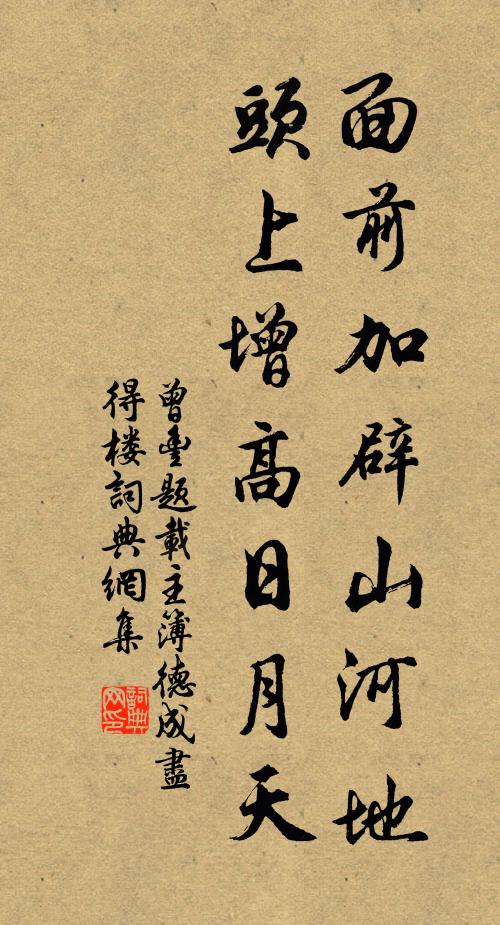 面前加辟山河地
頭上增高日月天
曾豐題載主簿德成盡
得楼詞典網集
詞典网印